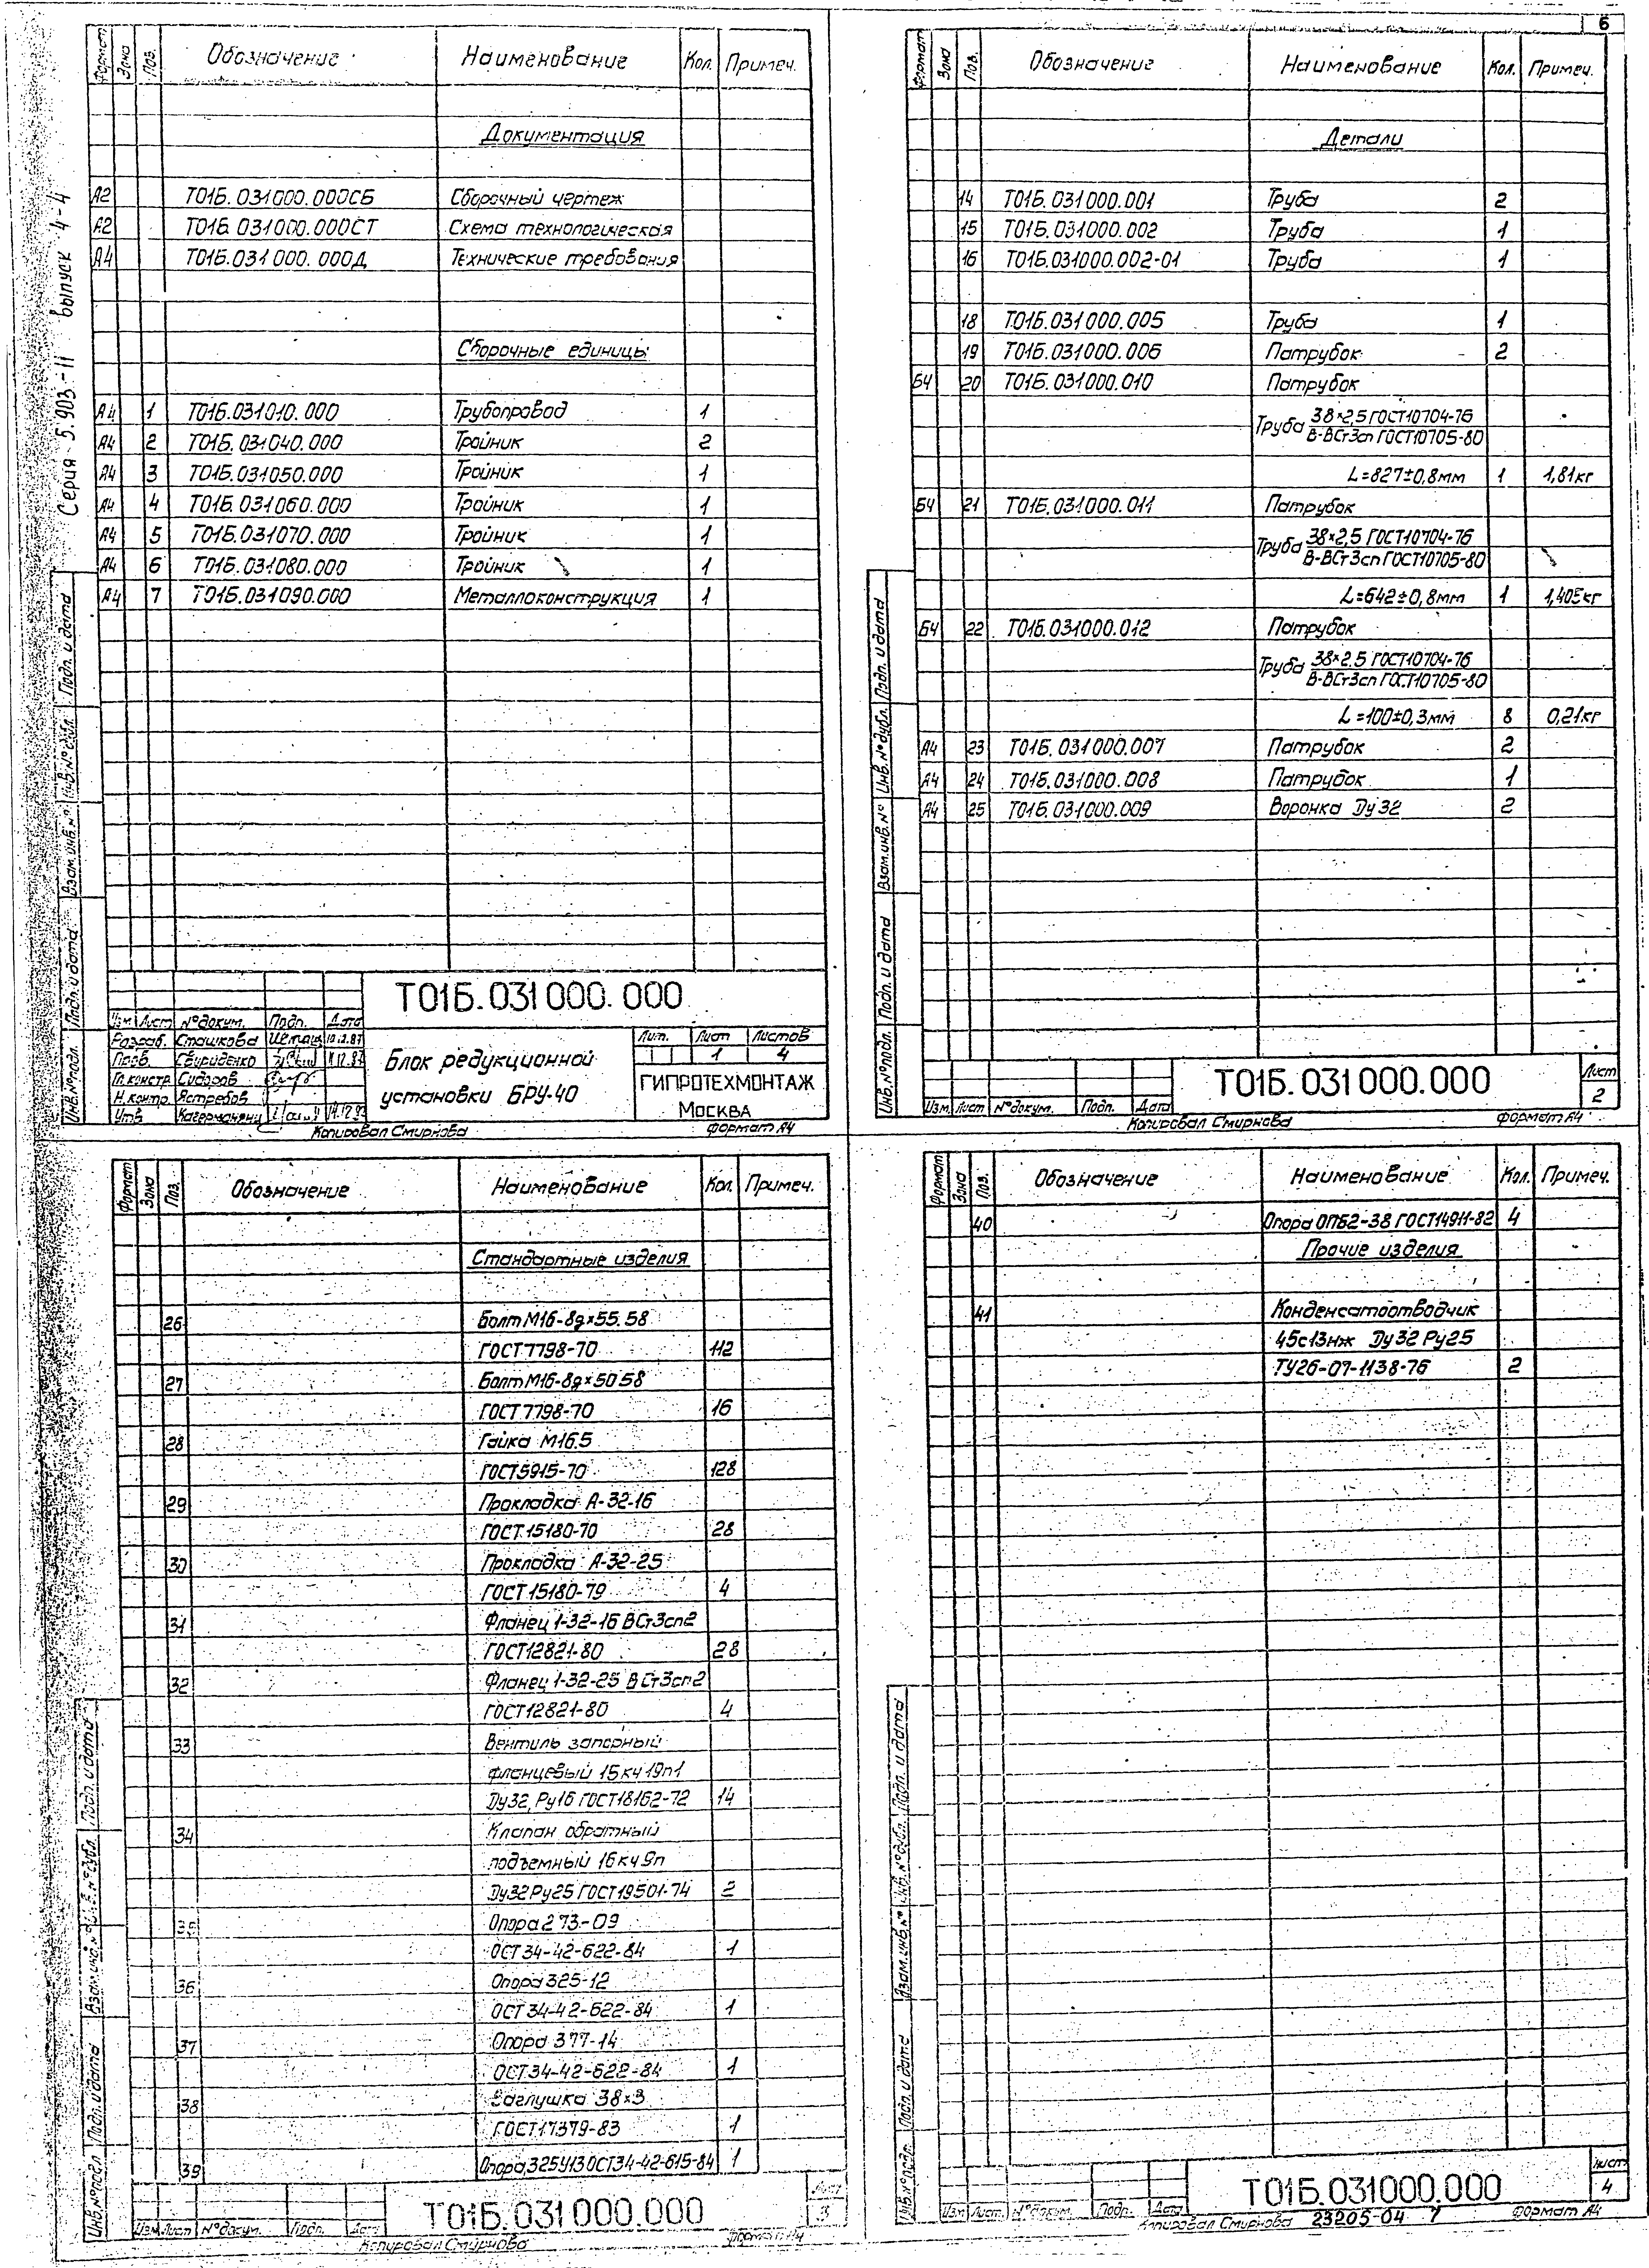 6
Серия 5.903-11 выпуск 4-4
Формат Зона Поз. Обозначение Наименование Кол. Примеч.
Документация
А2 Т01Б.031000.000СБ Сборочный чертеж
А2 Т01Б.031000.000СТ Схема технологическая
А4 Т01Б.031000.000Д Технические требования
Сборочные единицы
А4 1 Т01Б.031010.000 Трубопровод 1
А4 2 Т01Б.031040.000 Тройник 2
А4 3 Т01Б.031050.000 Тройник 1
А4 4 Т01Б.031060.000 Тройник 1
А4 5 Т01Б.031070.000 Тройник 1
А4 6 Т01Б.031080.000 Тройник 1
А4 7 Т01Б.031090.000 Металлоконструкция 1
Инв.№подл. Подп. и дата Взам.инв.№ Инв.№дубл. Подп. и дата
Т01Б.031000.000
Изм Лист №докум. Подп. Дата
Разраб. Сташкова
Пров. Свириденко
Гл.констр Сидоров
Н.контр Ястребов
Утв.
Блок редукционной
установки БРУ-40
Лит. Лист Листов
1 4
ГИПРОТЕХМОНТАЖ
Москва
Копировал Смирнова Формат А4
Формат Зона Поз. Обозначение Наименование Кол. Примеч.
Детали
14 Т01Б.031000.001 Труба 2
15 Т01Б.031000.002 Труба 1
16 Т01Б.031000.002-01 Труба 1
18 Т01Б.031000.005 Труба 1
19 Т01Б.031000.006 Патрубок 2
БЧ 20 Т01Б.031000.010 Патрубок
Труба 38×2,5 ГОСТ10704-76
В-ВСт3сп ГОСТ10705-80
L=827±0,8мм 1 1,81кг
БЧ 21 Т01Б.031000.011 Патрубок
Труба 38×2,5 ГОСТ10704-76
В-ВСт3сп ГОСТ10705-80
L=642±0,8мм 1 1,405кг
БЧ 22 Т01Б.031000.012 Патрубок
Труба 38×2.5 ГОСТ10704-76
В-ВСт3сп ГОСТ10705-80
L=100±0,3мм 8 0,21кг
А4 23 Т01Б.031000.007 Патрубок 2
А4 24 Т01Б.031000.008 Патрубок 1
А4 25 Т01Б.031000.009 Воронка Ду32 2
Инв.№подл. Подп. и дата Взам.инв.№ Инв.№дубл. Подп. и дата
Изм. Лист №докум. Подп. Дата
Т01Б.031000.000
Лист
2
Копировал Смирнова Формат А4
Формат Зона Поз. Обозначение Наименование Кол. Примеч.
Стандартные изделия
26 Болт М16-8g×55.58
ГОСТ 7798-70 112
27 Болт М16-8g×50.58
ГОСТ 7798-70 16
28 Гайка М16.5
ГОСТ5915-70 128
29 Прокладка А-32-16
ГОСТ.15180-70 28
30 Прокладка А-32-25
ГОСТ 15180-79 4
31 Фланец 1-32-16 ВСт3сп2
ГОСТ12821-80 28
32 Фланец 1-32-25 ВСт3сп2
ГОСТ12821-80 4
33 Вентиль запорный
фланцевый 15кч19п1
Ду32, Ру16 ГОСТ18162-72 14
34 Клапан обратный
подъемный 16кч9п
Ду32 Ру25 ГОСТ19501-74 2
Опора 273-09
ОСТ 34-42-622-84 1
36 Опора 325-12
ОСТ 34-42-622-84 1
37 Опора 377-14
ОСТ34-42-622-84 1
38 Заглушка 38×3
ГОСТ17379-83 1
39 Опора,325У13 ОСТ34-42-615-84 1
Инв.№подл Подп. и дата Взам.инв.№ Инв.№дубл. Подп. и дата
Изм Лист №докум. Подп. Дата
Т01Б.031000.000
Лист
3
Копировал Смирнова Формат А4
Формат Зона Поз. Обозначение Наименование Кол. Примеч.
40 Опора ОПБ2-38 ГОСТ14911-82 4
Прочие изделия
41 Конденсатоотводчик
45с13нж Ду32 Ру25
ТУ26-07-1138-76 2
Инв.№подл. Подп. и дата Взам.инв.№ Инв.№дубл. Подп. и дата
Изм Лист №докум. Подп. Дата
Т01Б.031000.000
Лист
4
Копировал Смирнова 23205-04 7 Формат А4